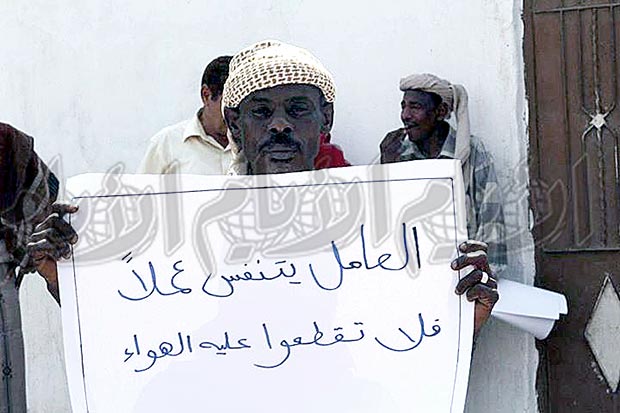 العامل يتنفس عملاً
فلا تقطعوا عليه الهواء
الأيام الأيام الأيام